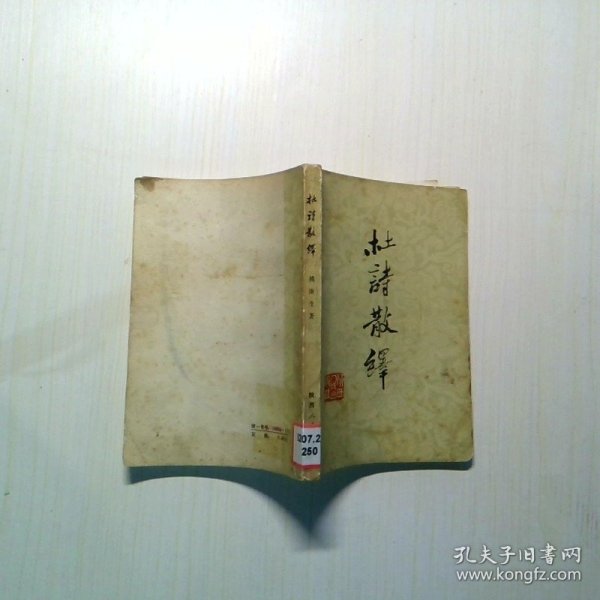 杜詩散繹
杜詩散繹
傅庚生著
陕西人
統一書号
定价
I207.2
250
孔夫子旧书网
www.kongfz.com